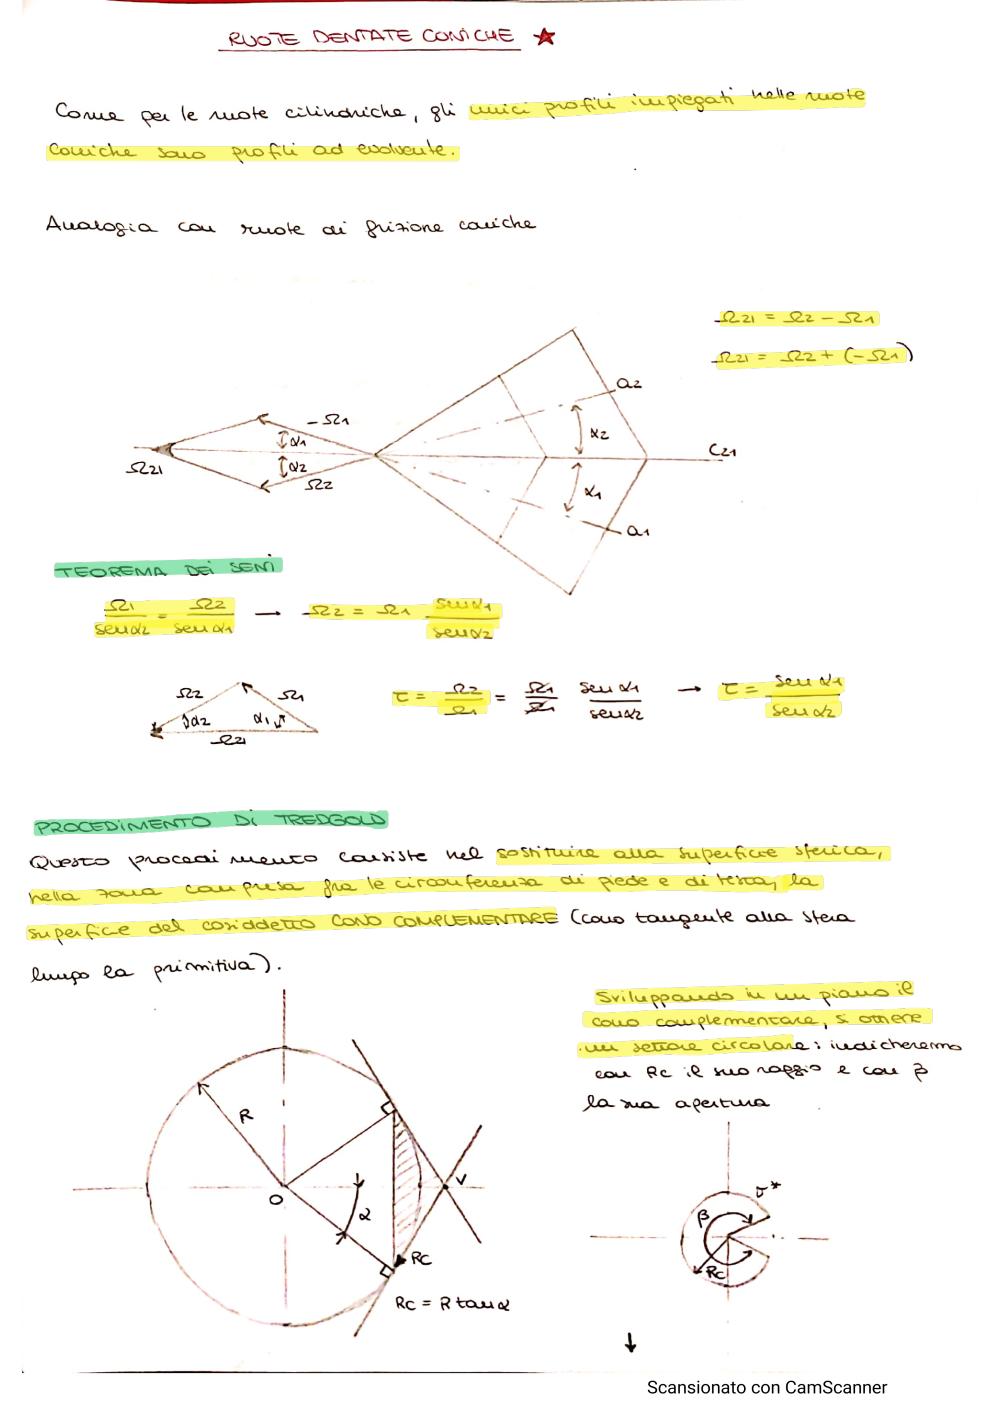 RUOTE DENTATE CONICHE ★
Come per le ruote cilindriche, gli unici profili impiegati nelle ruote
coniche sono profili ad evolvente.
Analogia con ruote di frizione coniche
Ω21 = Ω2 - Ω1
Ω21 = Ω2 + (-Ω1)
a2
-Ω1
α1
α2
C21
Ω21
α2
Ω2
α1
a1
TEOREMA DEI SENI
Ω1/senα2 = Ω2/senα1 → Ω2 = Ω1 senα1/senα2
Ω2 Ω1
α2 α1
Ω21
τ = Ω2/Ω1 = Ω1/Ω1 senα1/senα2 → τ = senα1/senα2
PROCEDIMENTO DI TREDGOLD
Questo procedimento consiste nel sostituire alla superficie sferica,
nella zona compresa fra le circonferenza di piede e di testa, la
superficie del cosiddetto CONO COMPLEMENTARE (cono tangente alla sfera
lungo la primitiva).
Sviluppando in un piano il
cono complementare, si ottiene
un settore circolare: indicheremo
con Rc il suo raggio e con β
la sua apertura
R
O
α
V
Rc
Rc = R tanα
β
Rc
↓
Scansionato con CamScanner